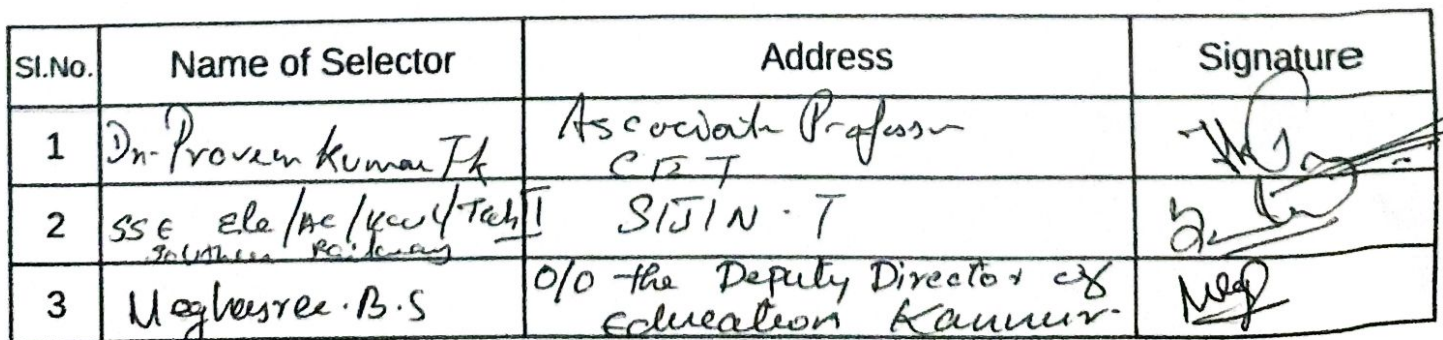 Sl.No. Name of Selector Address Signature
1 Dr. Praveen Kumar T.k Associate Professor
CET
2 SSE Ele/AC/ /Tech I SIJIN . T
Southern Railway
3 Meghasree . B.S O/O the Deputy Director of
Education Kannur.